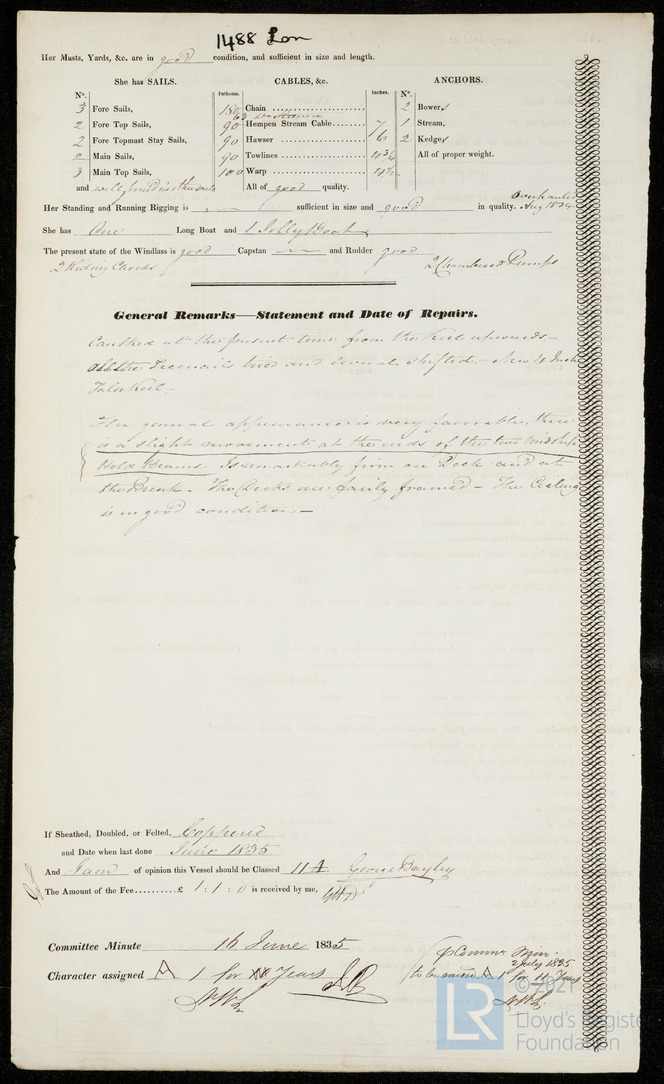 1488 Lon
Her Masts, Yards, &c. are in good condition, and sufficient in size and length.
She has SAILS. CABLES, &c. ANCHORS.
Nº. Fathoms. Inches. Nº.
3 Fore Sails, 180 Chain 2 Bowers
2 Fore Top Sails, 90 Hempen Stream Cable 7 1 Stream,
2 Fore Topmast Stay Sails, 90 Hawser 6 2 Kedges
2 Main Sails, 90 Towlines All of proper weight.
3 Main Top Sails, 100 Warp
and well found in others All of good quality.
Her Standing and Running Rigging is sufficient in size and good in quality. Overhauled Aug 1834
She has One Long Boat and 1 Jolly Boat
The present state of the Windlass is good Capstan and Rudder good
2 Riding Chocks 2 Chambered Pumps
General Remarks—Statement and Date of Repairs.
Caulked at the present time from the Keel upwards—
All the Treenails tried and several shifted.— New 14 Inch
False Keel—
Her general appearance is very favorable, there
is a slight movement at the ends of the two midship
Hold Beams. Is remarkably firm on Deck and at
the Break. The Decks are fairly framed— The Ceiling
is in good condition—
If Sheathed, Doubled, or Felted, Coppered
and Date when last done June 1835
And I am of opinion this Vessel should be Classed 11 A George Bayley
The Amount of the Fee £ 1:1:0 is received by me,
Committee Minute 16 June 1835
Character assigned A 1 for Years
Comme Min:
2 July 1835
to be A 1 for 11 Years
© 2021
LR
Lloyd's Register
Foundation